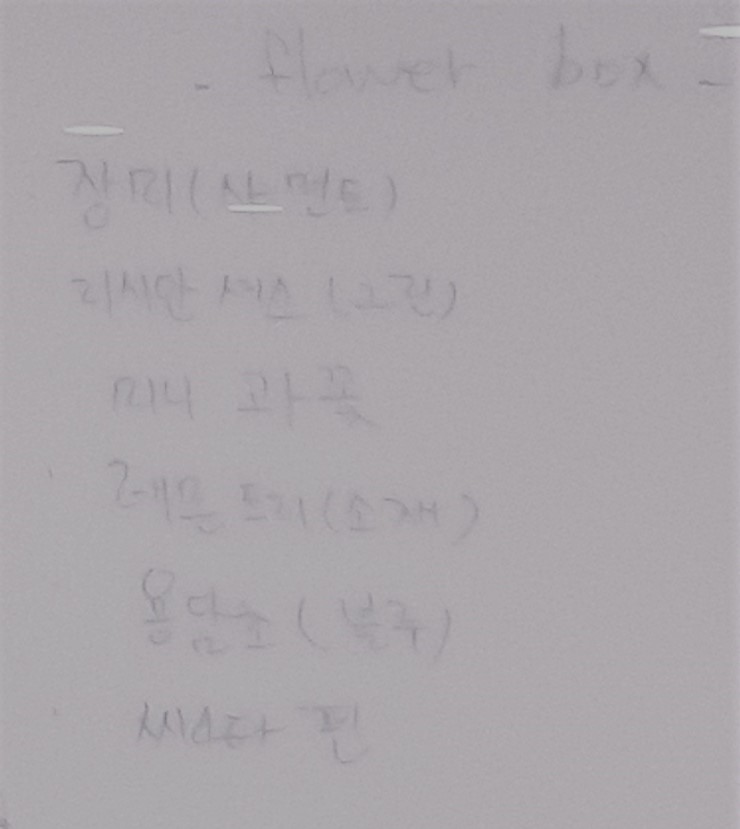 - flower box -
장미(샤먼트)
리시안 셔스 (그린)
미니 과꽃
레몬트리(소재)
용담초 (블루)
씨스타 핀